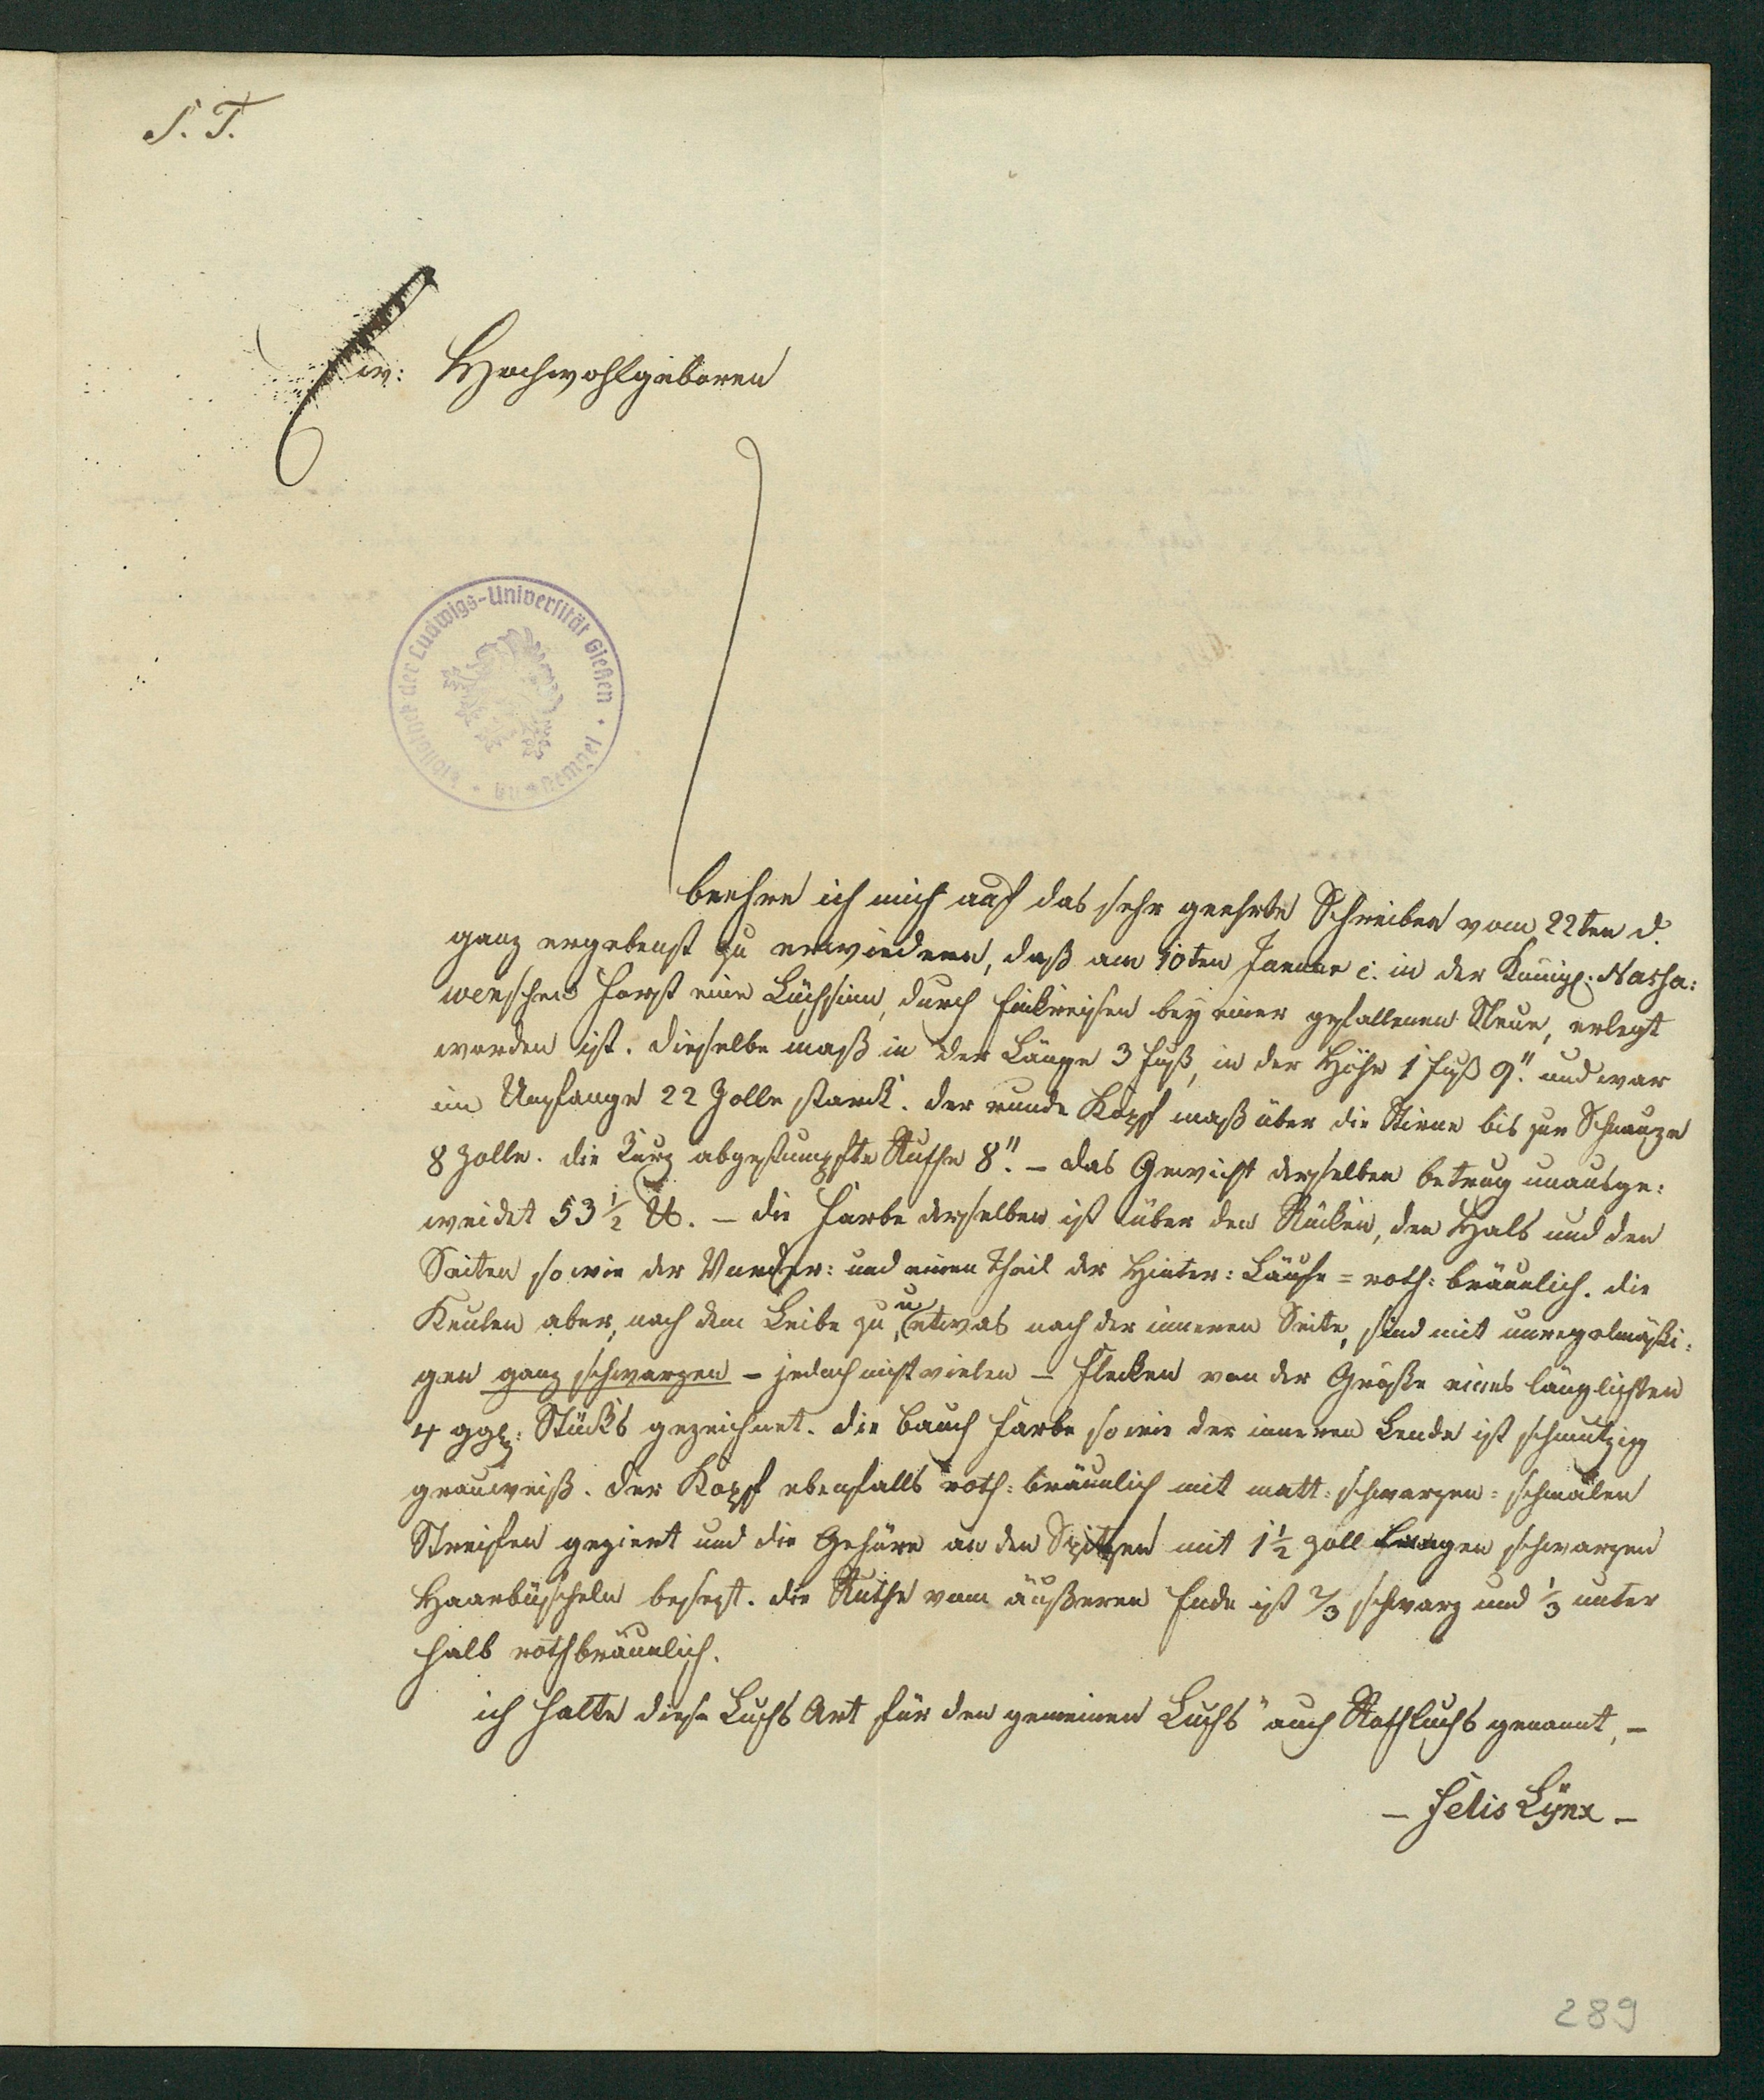 S. T.
Ew: Hochwohlgeboren
beehre ich mich auf das sehr geehrte Schreiben vom 22ten d.
ganz ergebenst zu erwiedern, daß am 10ten Januar c. in der Königl: Nassa:
wenschen Forst eine Lüchsinn, durch Einkreisen bey einer gefallenen Neue, erlegt
worden ist. Dieselbe maß in der Länge 3 Fuß, in der Höhe 1 Fuß 9". und war
im Umfange 22 Zolle stark. Der runde Kopf maß über die Stirne bis zur Schnauze
8 Zolle. Die kurz abgestumpfte Ruthe 8". – Das Gewicht derselben betrug unausge:
weidet 53 1/2 ℔. – Die Farbe derselben ist über den Rücken, den Hals und den
Seiten so wie der Vorder: und einen Theil der Hinter: Läufe = roth: bräunlich. Die
Keulen aber, nach dem Leibe zu, u etwas nach der inneren Seite, sind mit unregelmäßi:
gen ganz schwarzen – jedoch nicht vielen – Flecken von der Größe eines länglichten
4 ggl: Stücks gezeichnet. Die Bauch Farbe so wie der inneren Lende ist schmutzig
grauweiß. Der Kopf ebenfalls roth: bräunlich mit matt: schwarzen: schmalen
Streifen geziert und die Gehöre an den Spitzen mit 1 1/2 Zoll langen schwarzen
Haarbüscheln besezt. Die Ruthe vom äußeren Ende ist 2/3 schwarz und 1/3 unter
halb rothbräunlich.
ich halte diese Luchs Art für den gemeinen Luchs" auch Rothluchs genannt, –
– Felis Lÿnx –
der Ludwigs-Universität Gießen
289